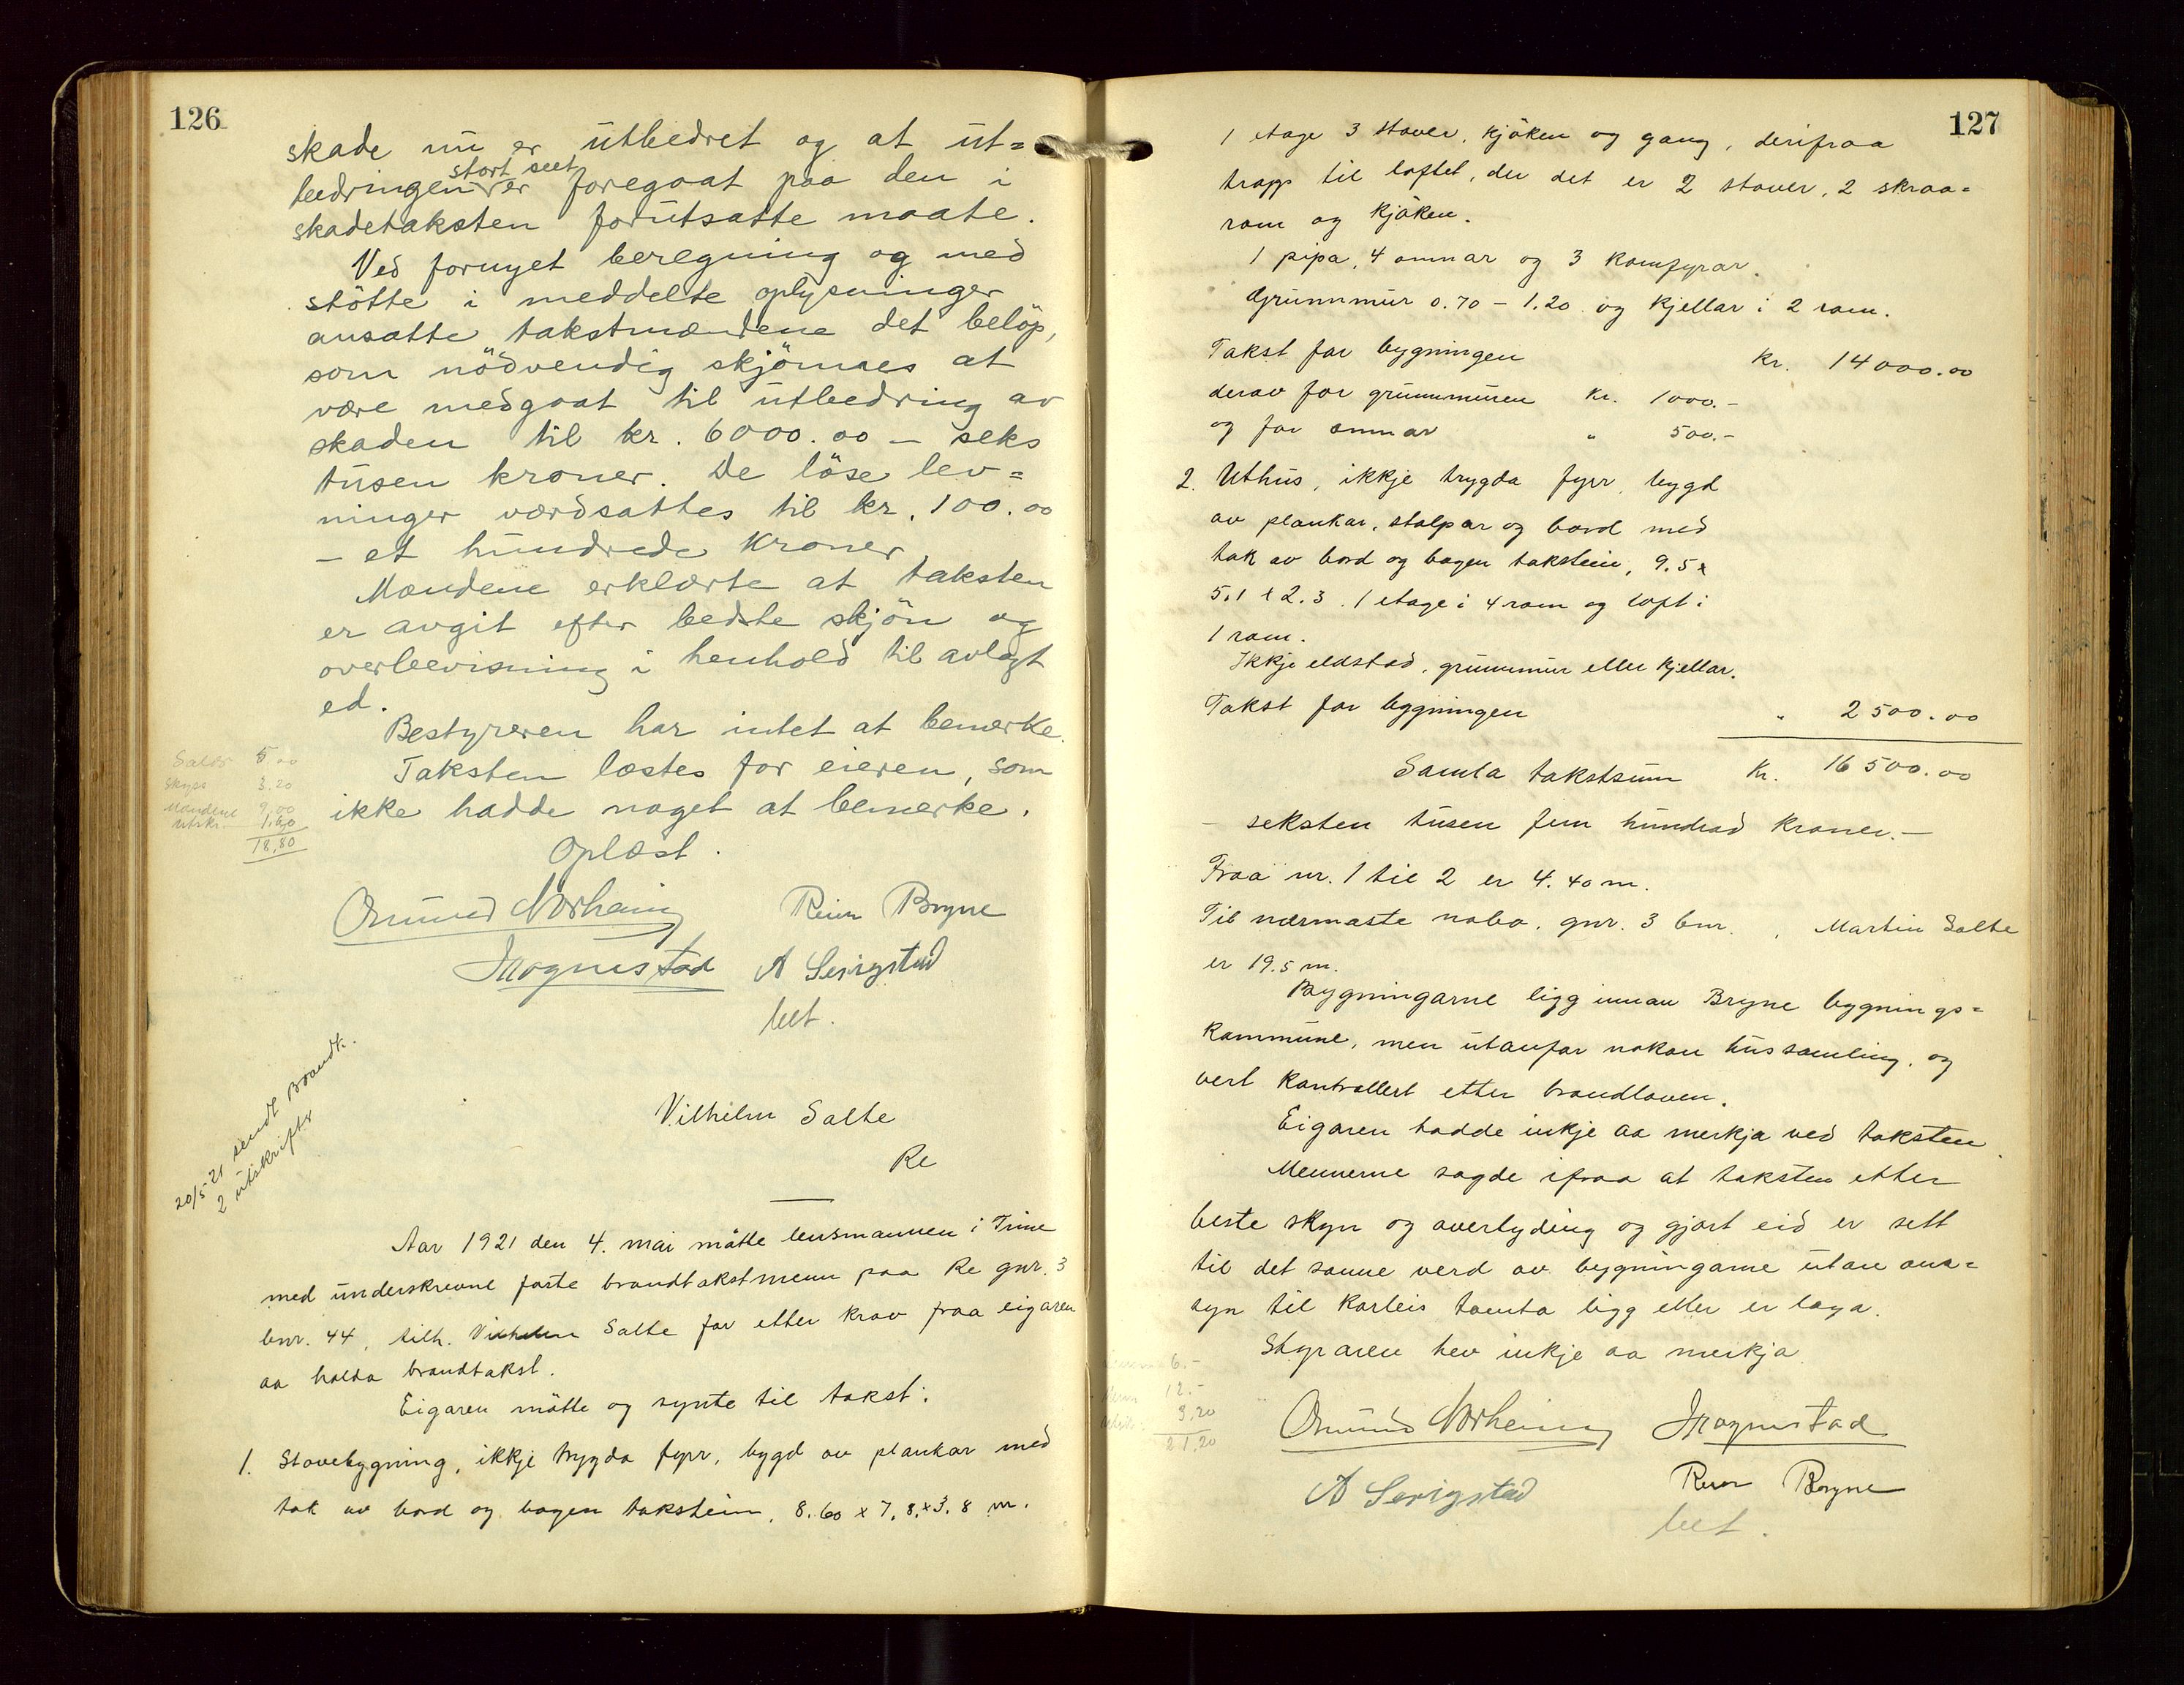 126
skade nu er utbedret og at ut=
bedringen stort seet er foregaat paa den i
skadetaksten forutsatte maate.
Ved fornyet beregning og med
støtte i meddelte oplysninger
ansatte takstmændene det beløp,
som nødvendig skjønnes at
være medgaat til utbedring av
skaden til kr. 6000.00 – seks
tusen kroner. De løse lev=
ninger værdsattes til kr. 100.00
– et hundrede kroner.
Mændene erklærte at taksten
er avgit efter bedste skjøn og
overbevisning i henhold til avlagt
ed.
Bestyreren har intet at bemerke.
Taksten læstes for eieren, som
ikke hadde noget at bemerke.
Oplæst.
Salær 5.00
Skyss 3.20
Mændene 9.00
Utskr. 1.60
18,80
Osmund Norheim Reier Bryne
Trognistad A Serigstad
lut.
20/5-21 sendt Brandt.
2 utskrifter
Vilhelm Salte
Re
Aar 1921 den 4. mai møtte lensmannen i Time
med underskrevne faste brandtakstmenn paa Re gnr. 3
bnr. 44, tilh. Vilhelm Salte for etter krav fraa eigaren
aa halda brandtakst.
Eigaren møtte og synte til takst:
1. Stovebygning, ikkje trygda fyrr, bygd av plankar med
tak av bord og bogen takstein, 8.60 x 7.8 x 3.8 m.
127
1 etage 3 stover, kjøken og gang, derifraa
trapp til loftet, der det er 2 stover, 2 skraa=
rom og kjøken.
1 pipa, 4 omnar og 3 komfyrar.
Grunnmur 0.70 – 1.20 og kjellar i 2 rom.
Takst for bygningen Kr. 14000.00
derav for grunnmuren Kr. 1000.–
og for omnar " 500.–
2. Uthus, ikkje trygda fyrr, bygd
av plankar, stolpar og bord med
tak av bord og bogen takstein, 9.5 x
5.1 x 2.3. 1 etage i 4 rom og loft i
1 rom.
Ikkje eldstad, grunnmur eller kjellar.
Takst for bygningen " 2500.00
Samla takstsum Kr. 16500.00
– seksten tusen fem hundrad kroner. –
Fraa nr. 1 til 2 er 4.40 m.
Til nærmaste nabo, gnr. 3 bnr. , Martin Salte
er 19.5 m.
Bygningarne ligg innan Bryne bygnings=
kommune, men utanfor nokon hussamling, og
vert kontrollert etter brandloven.
Eigaren hadde inkje aa merkja ved taksten.
Mennerne sagde ifraa at taksten etter
beste skyn og overtyding og gjort eid er sett
til det sanne verd av bygningarne utan om=
syn til korleis tomta ligg eller er laga.
Styraren hev inkje aa merkja.
6.–
12.–
3,20
21,20
Osmund Norheim Trognistad
A Serigstad Reier Bryne
lut.